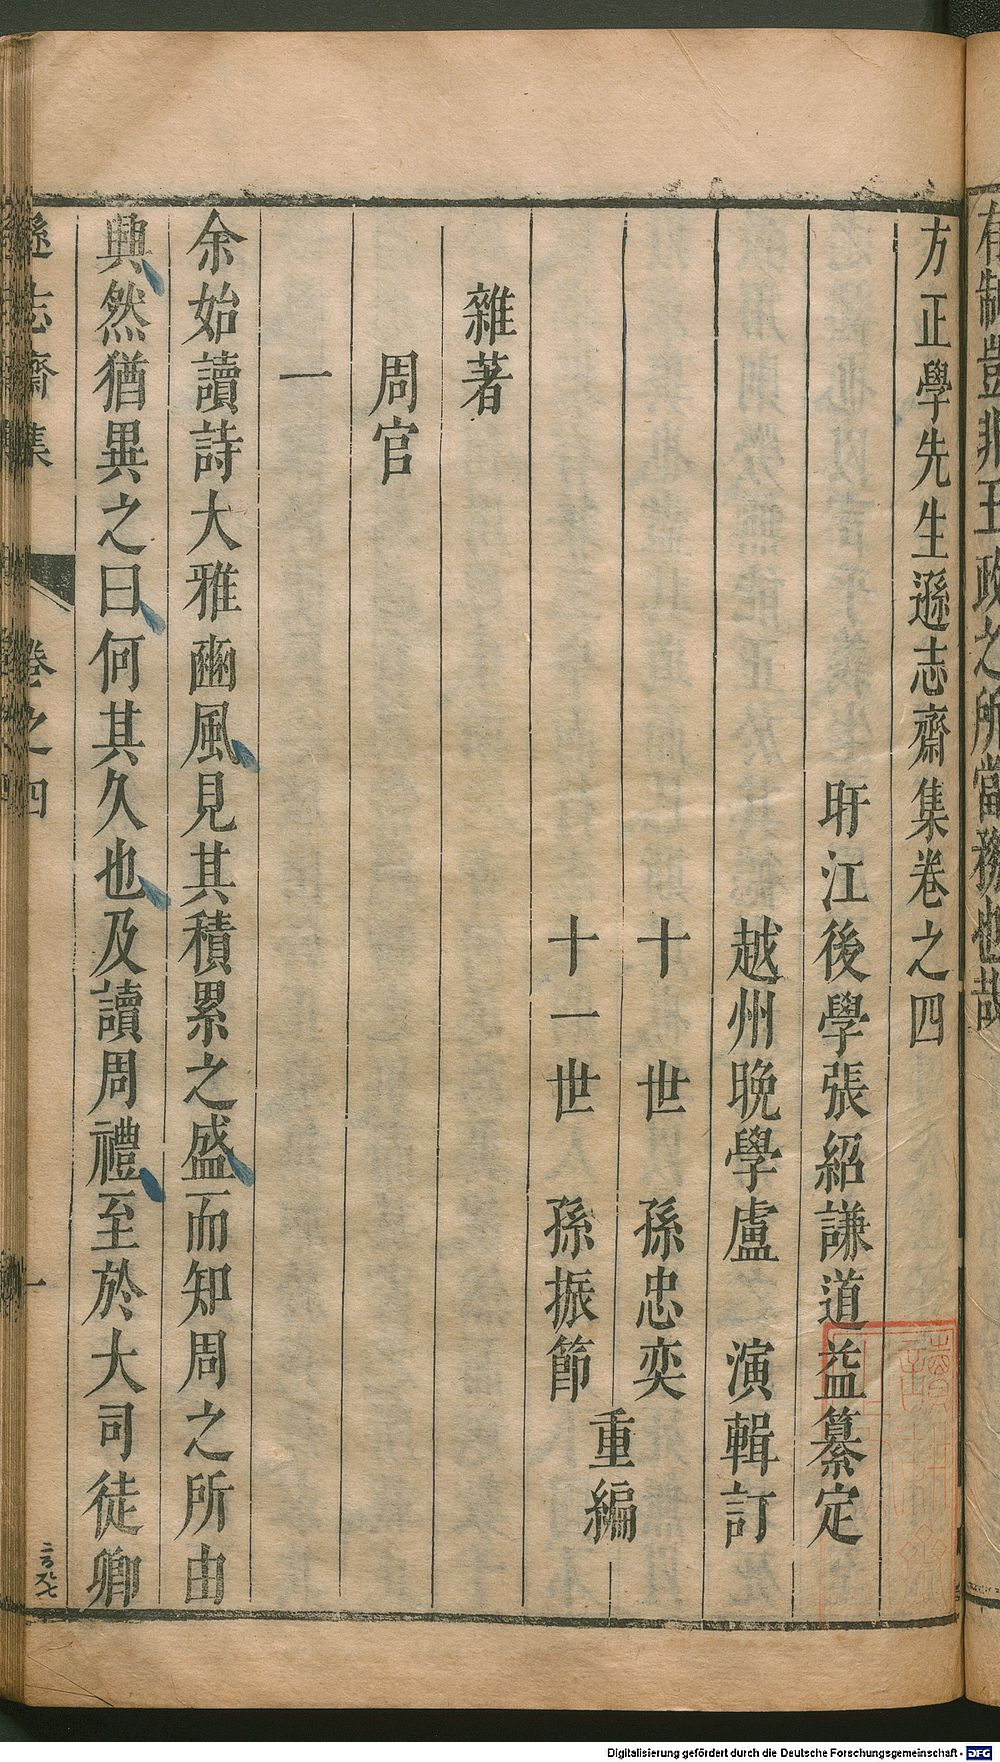 有制豈非王政之所當務也哉
方正學先生遜志齋集卷之四
盱江後學張紹謙道益纂定
越州晚學盧 演輯訂
十 世 孫忠奕
十一世 孫振節
重編
雜著
周官
一
余始讀詩大雅豳風見其積累之盛而知周之所由
興然猶異之曰何其久也及讀周禮至於大司徒卿
遜志齋集 卷之四 一
Digitalisierung gefördert durch die Deutsche Forschungsgemeinschaft - DFG